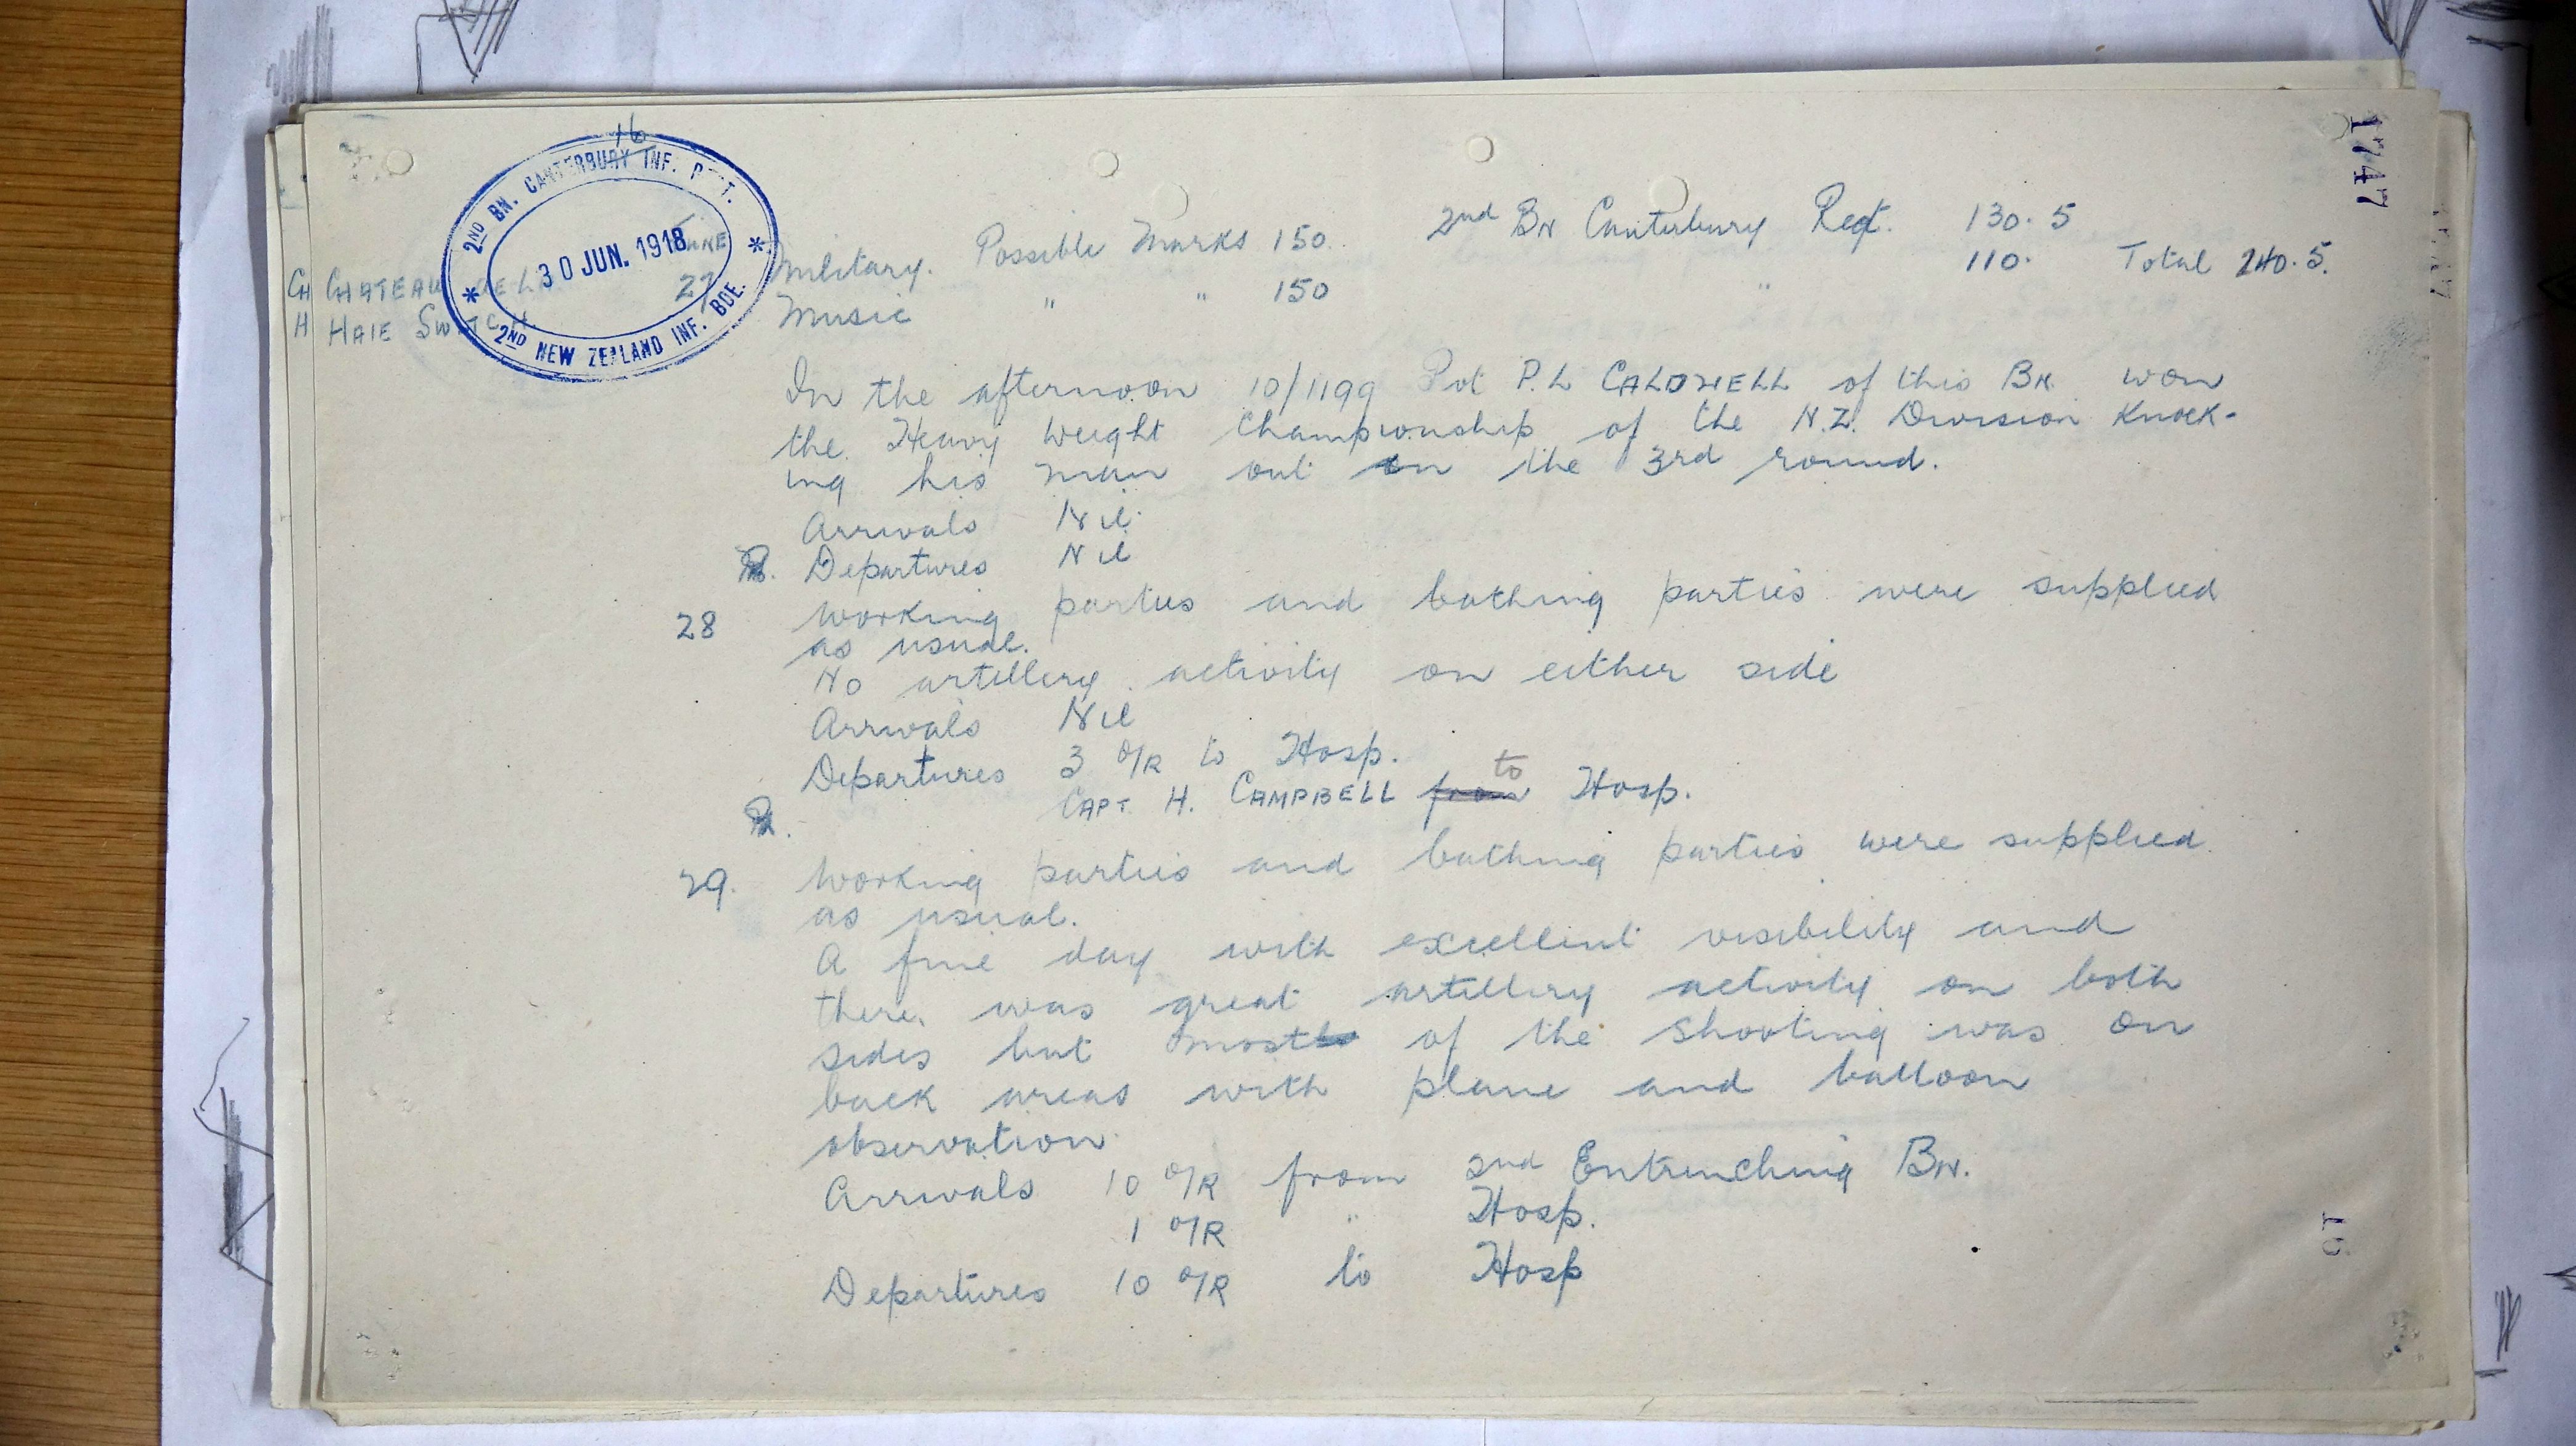 16
2ND BN. CANTERBURY INF. REGT.
30 JUN. 1918
2ND NEW ZEALAND INF. BDE.
1747
CHATEAU DE LA
HAIE SWITCH.
27 Military. Possible Marks 150. 2nd BN Canterbury Regt. 130.5
Music " " 150 " 110. Total 240.5.
In the afternoon 10/1199 Pvt P.L CALDWELL of this BN. won
the Heavy Weight Championship of the N.Z. Division Knock-
ing his man out in the 3rd round.
Arrivals Nil.
Departures Nil
28 Working parties and bathing parties were supplied
as usual.
No artillery activity on either side
Arrivals Nil
Departures 3 O/R to Hosp.
CAPT. H. CAMPBELL from to Hosp.
29. Working parties and bathing parties were supplied.
as usual.
A fine day with excellent visibility and
there was great artillery activity on both
sides but most of the shooting was on
back areas with plane and balloon
observation.
Arrivals 10 O/R from 2nd Entrenching BN.
1 O/R " Hosp.
Departures 10 O/R to Hosp
16